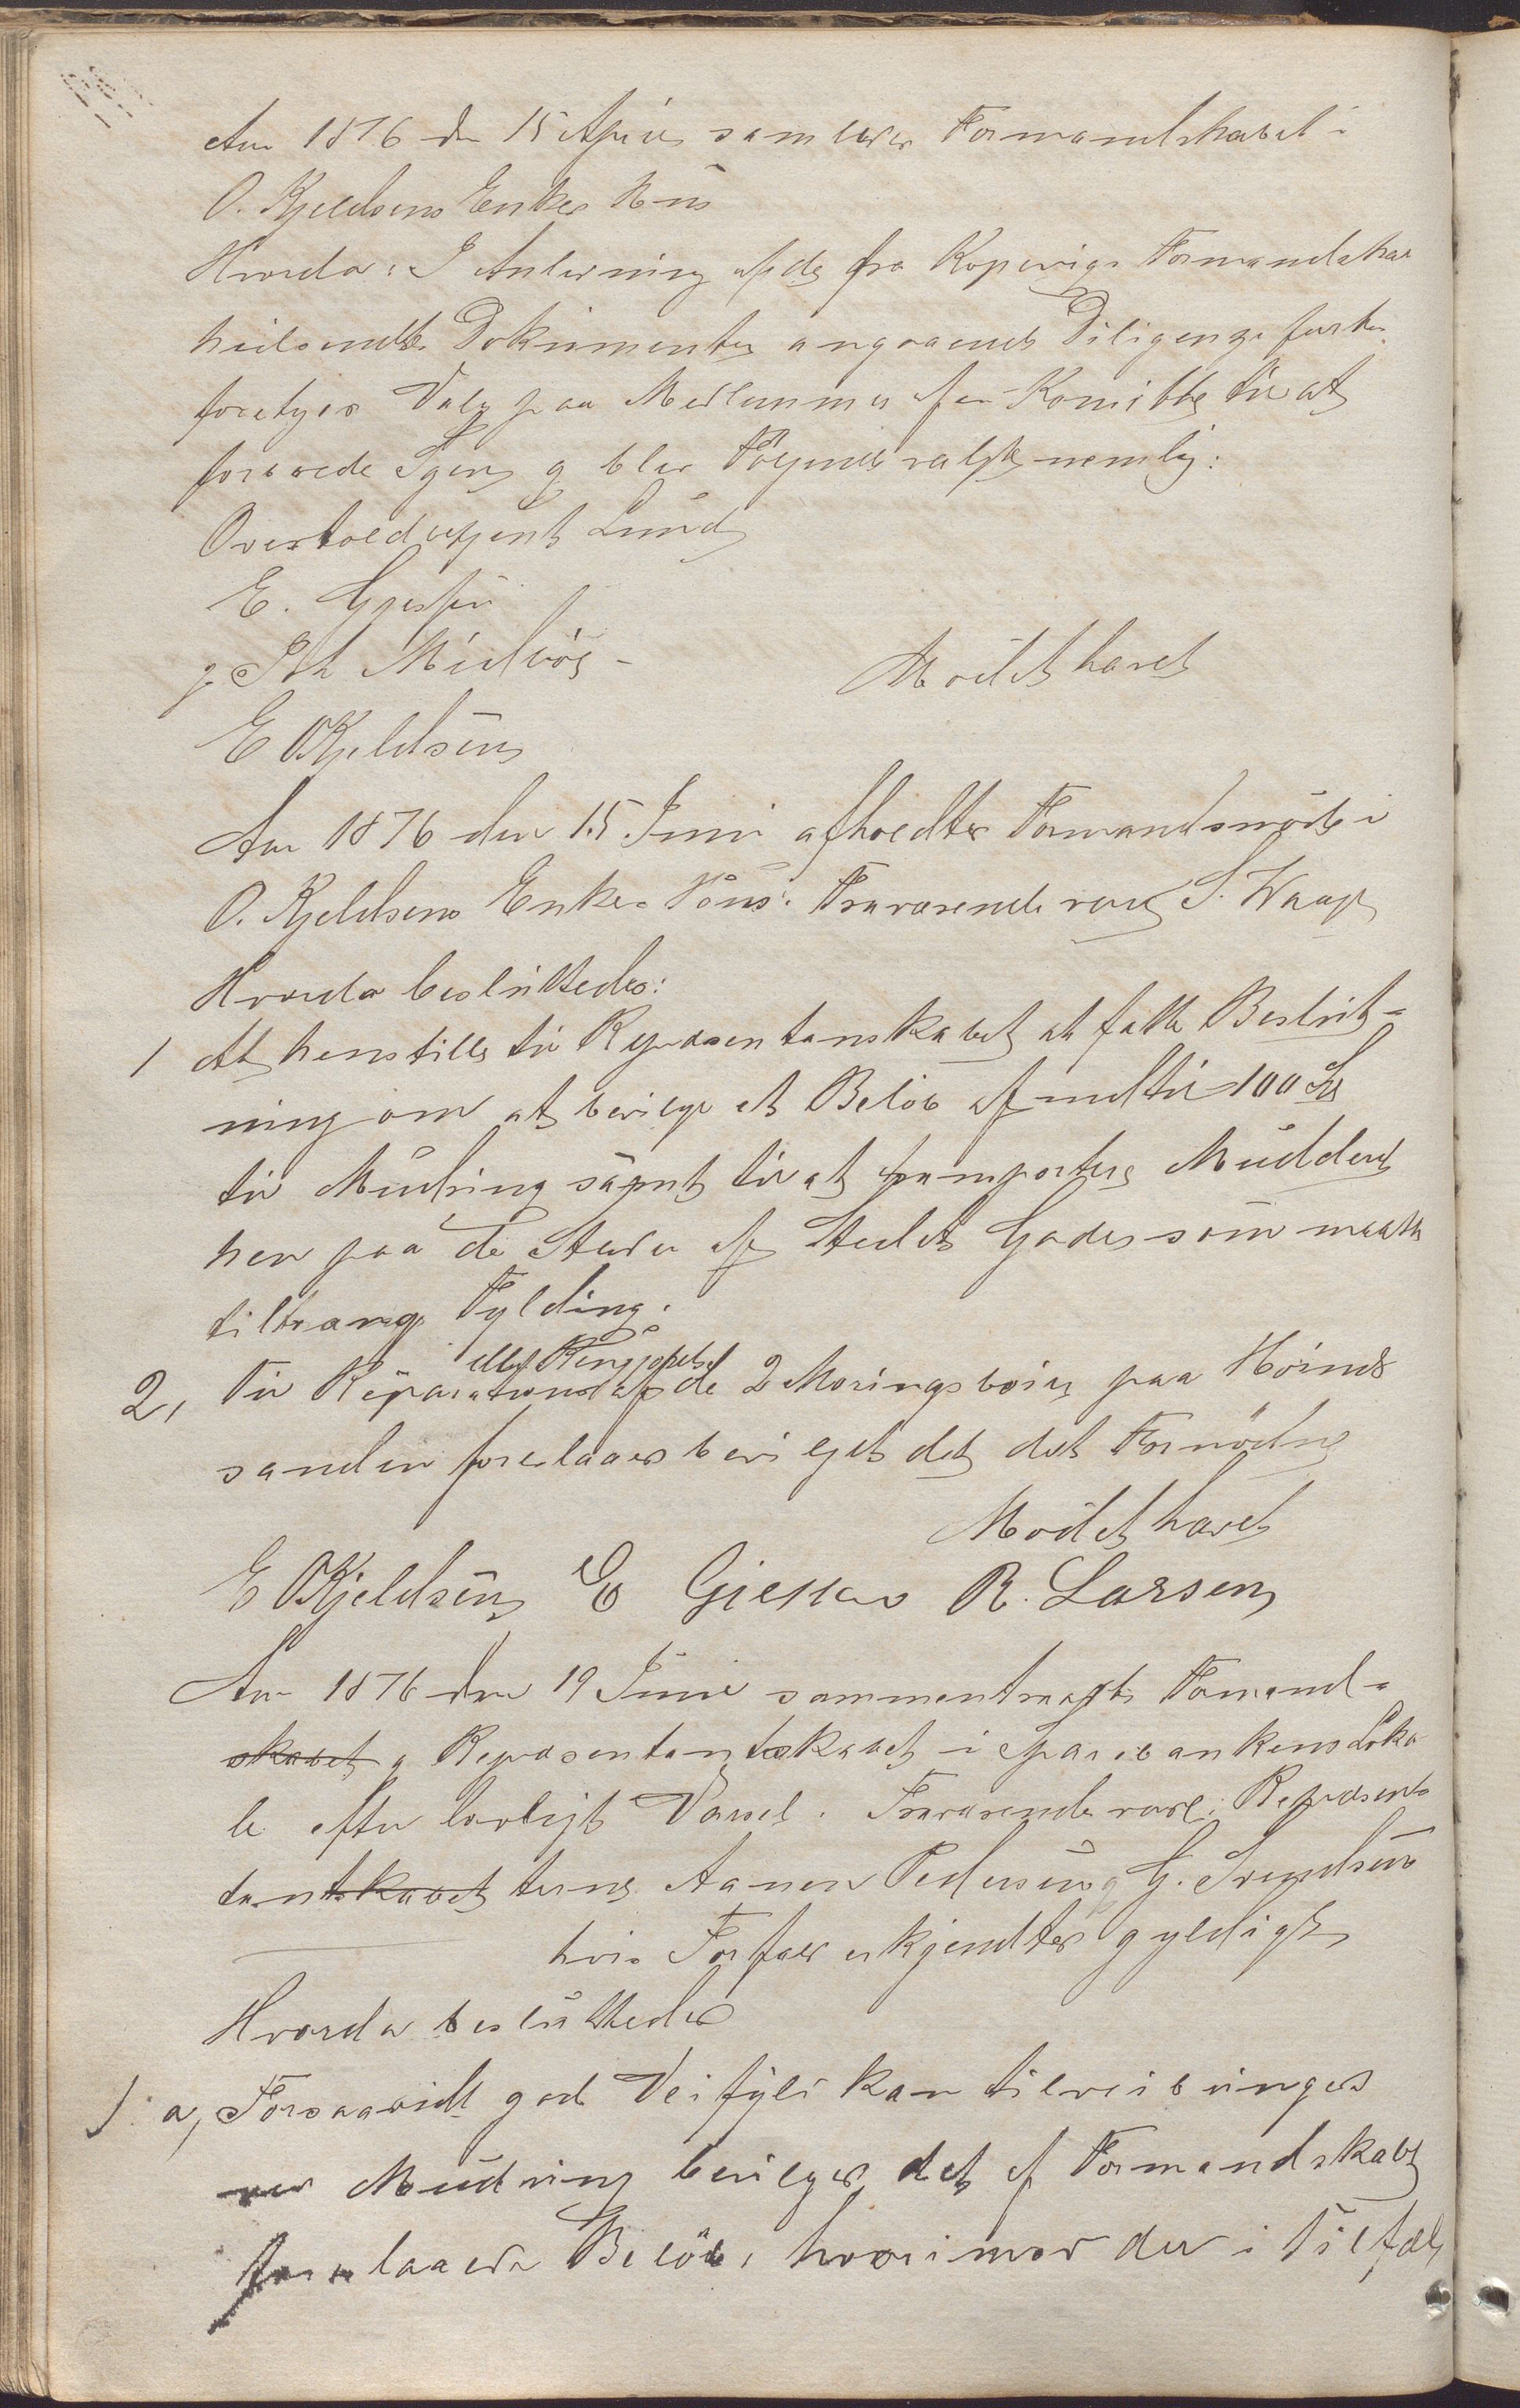 Aar 1876 den 15 April samledes Formandskabet i
O. Kjeldsens Enkes Hus
Hvorda: I Anledning af de fra Kopervigs Formandskab
hidsendte Dokumenter angaaende Diligence
foretages Valg paa Medlemmer af en Komitte til at
Sagen og blev Følgende valgte nemlig:
Overtoldbetjent Lund
E.
g Joh Midbøe -
Mødet hævet
E OKjeldsen
Aar 1876 den 15 Juni afholdtes Formandsmøde i
O. Kjeldsens Enkes Hus. Fraværende var S. Waage
Hvorda besluttedes:
1 At henstille til Repræsentanskabet at fatte Beslut-
ning om at bevilge et Beløb af indtil 100 Sp
til Mudring samt til at transportere Mudderet
hen paa de Steder af Stedets Gader som maatte
tiltrænge Fylding.
2, Til Reparation eller af de 2 Moringsbøier paa Høinæs
sanden foreslaaes bevilget det det Fornødne
Mødet hævet
E OKjeldsen E Gjessen R. Larsen
Aar 1876 den 19 Juni sammentraadte Formand-
skabet g Repræsentantskabet i Sparebankens Loka
le efter lovligt Varsel. Fraværende vare: Repræsen
tantskabet terne Aanen Pedersen g G. Svendsen
hvis Forfald erkjendtes gyldigt
Hvorda besluttedes
1. a, Forsaavidt god Veifyld kan tilveibringes
ved Mudring bevilges det af Formandskabet
foreslaaede Beløb, hvorimod der i Tilfælde